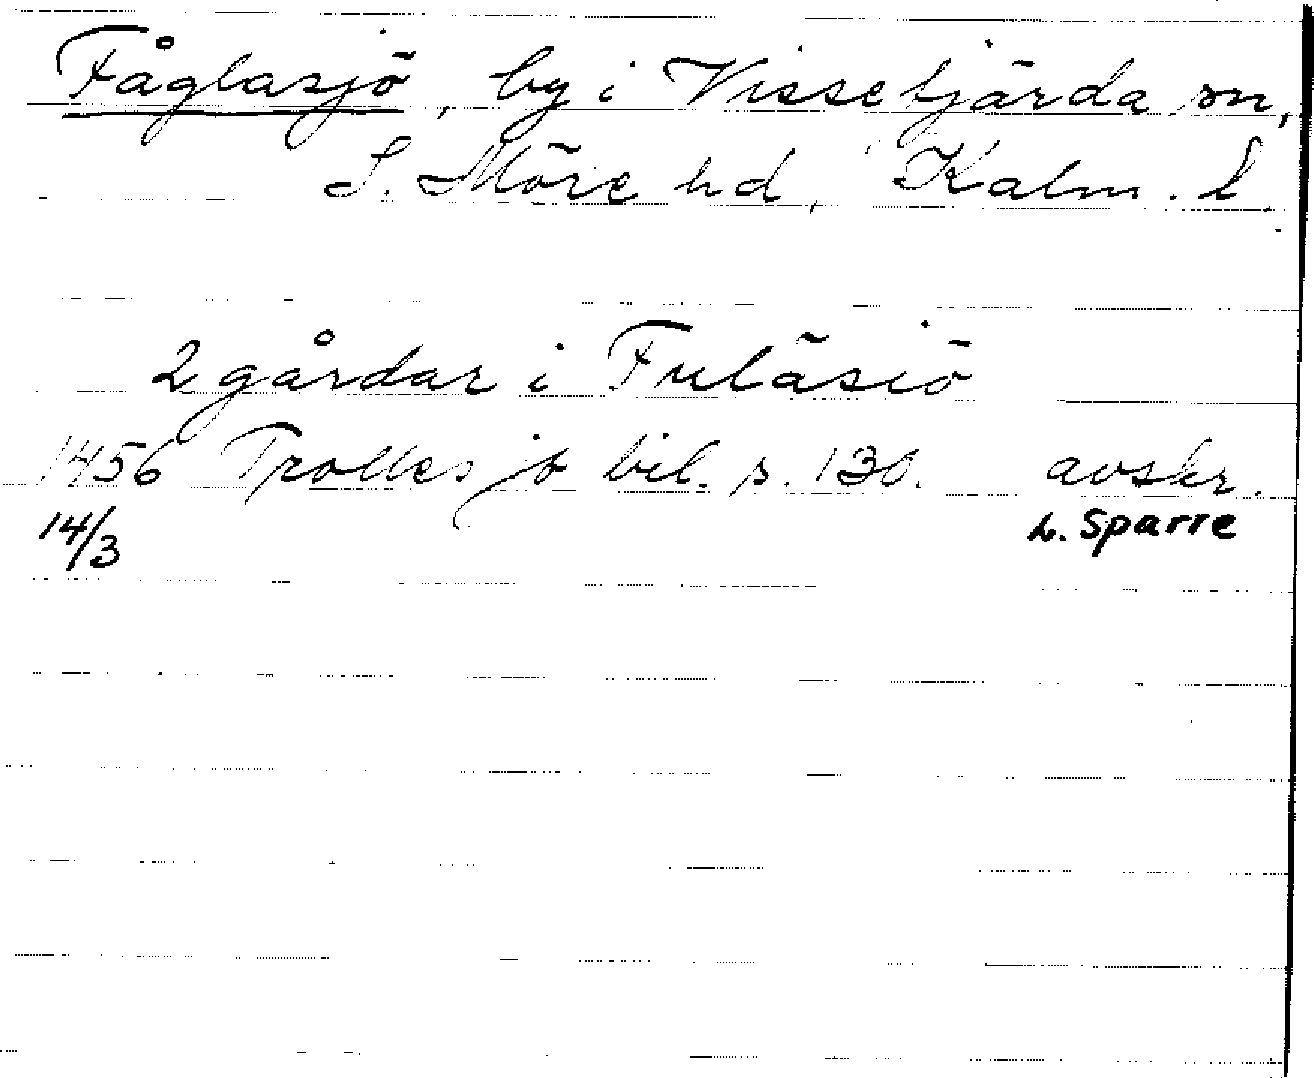 Fåglasjö, by i Vissefjärda sn,
S. Möre hd, Kalm. l.
2 gårdar i Fuläsiö
1456 Trolles jb bil. s. 130. avskr.
14/3 L. Sparre